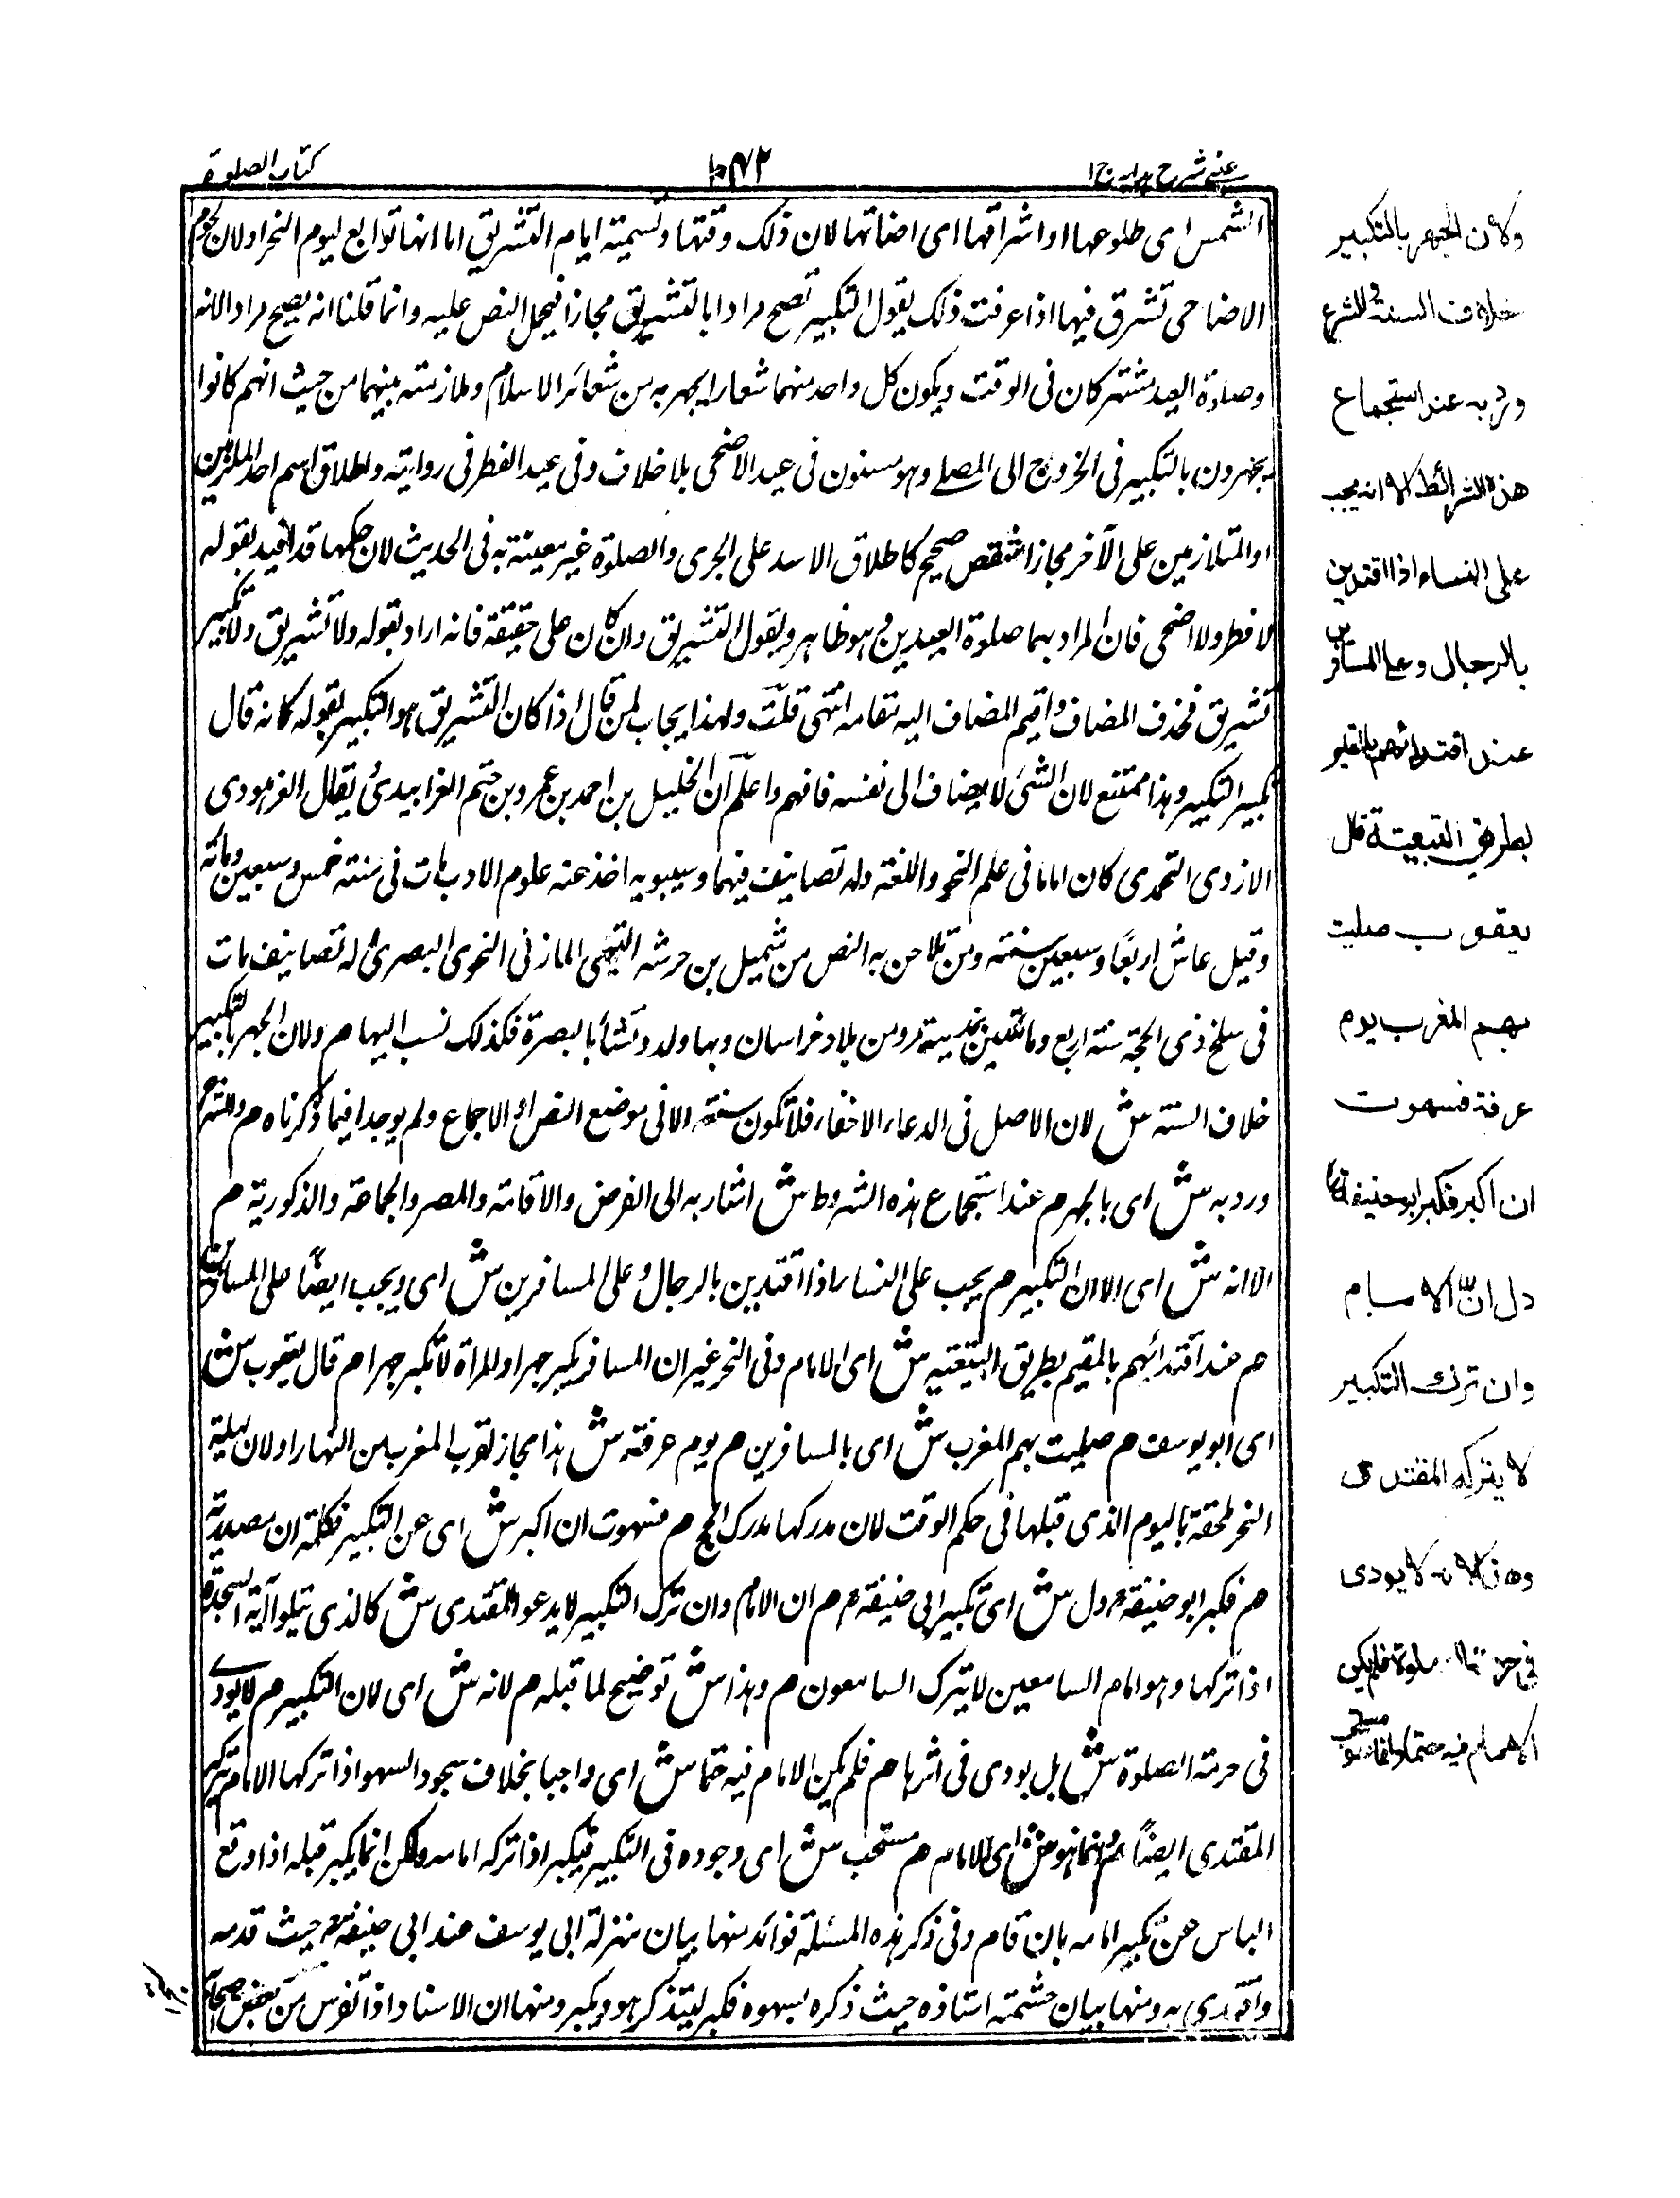 عینی شرح ہدایہ ج ١
١٠٧٢
كتاب الصلوة
الشمس ای طلوعها او اشراقها ای اضائتها لان ذلک وقتها وتسمیته ایام التشریق اما انها توابع لیوم النحر اولان لحوم
الاضاحی تشرق فیها اذا عرفت ذلک یقول التکبیر تصح مرادا بالتشریق مجازا فیحمل النص علیه وانما قلنا انه یصح مراد الانه
وصلوة العید مشترکان فی الوقت ویکون کل واحد منهما شعارا یجهر به من شعائر الاسلام وملازمته بینهما من حیث انهم کانوا
یجهرون بالتکبیر فی الخروج الی المصلے وهو مسنون فی عید الاضحی بلا خلاف وفی عید الفطر فی روایته واطلاق اسم احد الملازمین
او المتلازمین علی الآخر مجازا صحیح کاطلاق الاسد علی الجری والصلوة غیر معینة به فی الحدیث لان حکمها قد افید بقوله
لا فطر ولا اضحی فان المراد بهما صلوة العیدین وهو ظاهر ویقول التشریق وان کان علی حقیقة فانه اراد بقوله ولا تشریق ولا تکبیر
تشریق فحذف المضاف واقیم المضاف الیه مقامه انتهی قلت ولهذا یجاب لمن قال اذا کان التشریق هو التکبیر بقوله کانه قال
تکبیر التکبیر وهذا ممتنع لان الشئ لا یضاف الی نفسه فافهم واعلم ان الخلیل بن احمد بن عمرو بن یقال الفرهودی
الازدی کان اماما فی علم النحو واللغة وله تصانیف فیهما وسیبویه اخذ عنه علوم الادب مات فی سنة خمس وسبعین ومائة
وقیل عاش اربعًا وسبعین سنة ومن به النص من شمیل بن خرشه المازنی النحوی البصری له تصانیف مات
فی سلخ ذی الحجة سنة اربع ومائتین بمدینة مرو من بلاد خراسان وبها ولد ونشأ بالبصرة فکذلک نسب الیها م ولان الجهر بالتکبیر
خلاف السنة ش لان الاصل فی الدعاء الاخفاء فلا تکون سنة الا فی موضع النص او الاجماع ولم یوجدا فیما ذکرناه م والشرع
ورد به ش ای بالجهر م عند استجماع هذه الشروط ش اشار به الی الفرض والاقامة والمصر والجماعة والذکوریة م
الا انه ش ای الا ان التکبیر م یجب علی النساء اذا اقتدین بالرجال وعلی المسافرین ش ای ویجب ایضًا علی المسافرین
م عند اقتدائهم بالمقیم بطریق التبعیة ش ای الامام وفی النحر غیر ان المسافر یکبر جهرا والمراة لا تکبر جهرا م قال یعقوب ش
ای ابو یوسف م صلیت بهم المغرب ش ای بالمسافرین م یوم عرفة ش هذا مجاز لقرب المغرب من النهار اولان لیلة
النحر ملحقة بالیوم الذی قبلها فی حکم الوقت لان مدرکها مدرک الحج م فسهوت ان اکبر ش ای عن التکبیر فکلمة ان مصدریة
م فکبر ابو حنیفة م دل ش ای تکبیر ابی حنیفة م ان الامام وان ترک التکبیر لا یدعه المقتدی ش کالذی یتلوا آیة السجدة
اذا ترکها وهو امام السامعین لا یترک السامعون م وهذا ش توضیح لما قبله م لانه ش ای لان التکبیر م لا یودی
فی حرمة الصلوة ش بل یودی فی اثرها م فلم یکن الامام فیه حتما ش ای واجبا بخلاف سجود السهو اذا ترکها الامام ترک
المقتدی ایضًا م وانما هو ش ای الامام م مستحب ش ای وجوده فی التکبیر فیکبر اذا ترکه امامه ولکن انما یکبر قبله اذا وقع
الیاس عن تکبیر امامه بان قام وفی ذکر هذه المسئلة فوائد منها بیان منزلة ابی یوسف عند ابی حنیفة حیث قدمه
واقتدی به ومنها بیان حشمة استاذه حیث ذکره بسهوه فکبر لیتذکر هو ویکبر ومنها ان الاستاد اذا تفرس من بعض اصحابه
ولان الجهر بالتكبير
خلاف السنة والشرع
ورد به عند استجماع
هذه الشرائط الا انه يجب
على النساء اذا اقتدين
بالرجال وعلى المسافرين
عند اقتدائهم بالمقيم
بطريق التبعية قال
يعقوب صليت
بهم المغرب يوم
عرفة فسهوت
ان اكبر فكبر ابو حنيفة
دل ان الامام
وان ترك التكبير
لا يتركه المقتدى
وهذا لانه لا يودى
فى حرمة الصلوة فلم يكن
الامام فيه حتما وانما هو مستحب